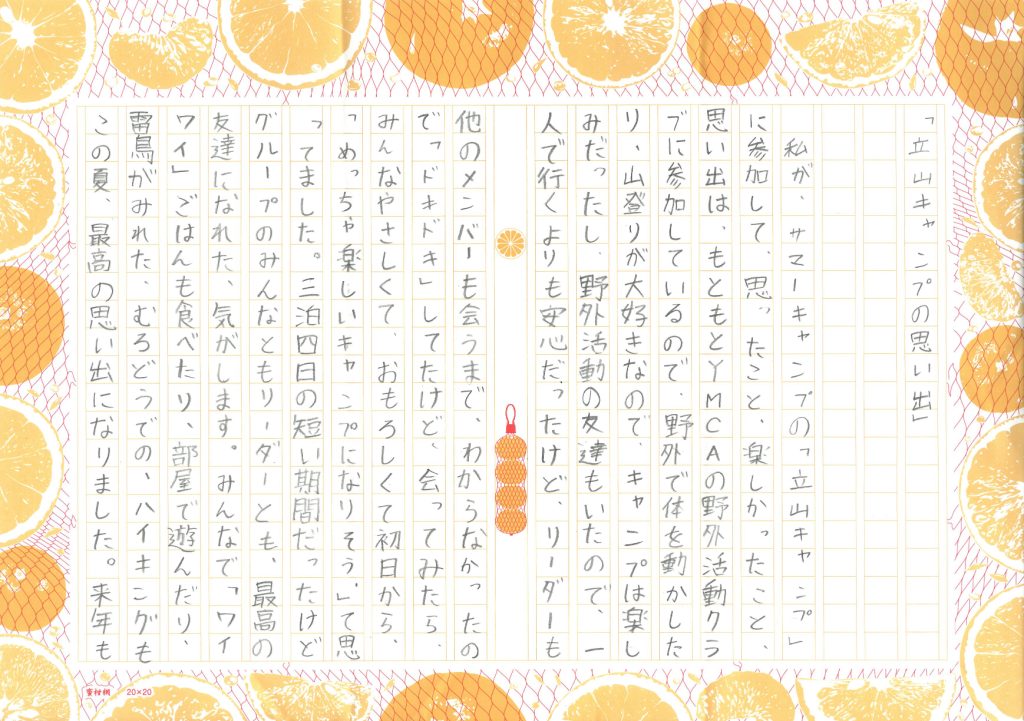 「立山キャンプの思い出」
私が、サマーキャンプの「立山キャンプ」
に参加して、思ったこと、楽しかったこと、
思い出は、もともとYMCAの野外活動クラ
ブに参加しているので、野外で体を動かした
り、山登りが大好きなので、キャンプは楽し
みだったし、野外活動の友達もいたので、一
人で行くよりも安心だったけど、リーダーも
他のメンバーも会うまで、わからなかったの
で「ドキドキ」してたけど、会ってみたら、
みんなやさしくて、おもろしくて初日から、
「めっちゃ楽しいキャンプになりそう」て思
ってました。三泊四日の短い期間だったけど
グループのみんなともリーダーとも、最高の
友達になれた、気がします。みんなで「ワイ
ワイ」ごはんも食べたり、部屋で遊んだり、
雷鳥がみれた、むろどうでの、ハイキングも
この夏、最高の思い出になりました。来年も
蜜柑網 20×20